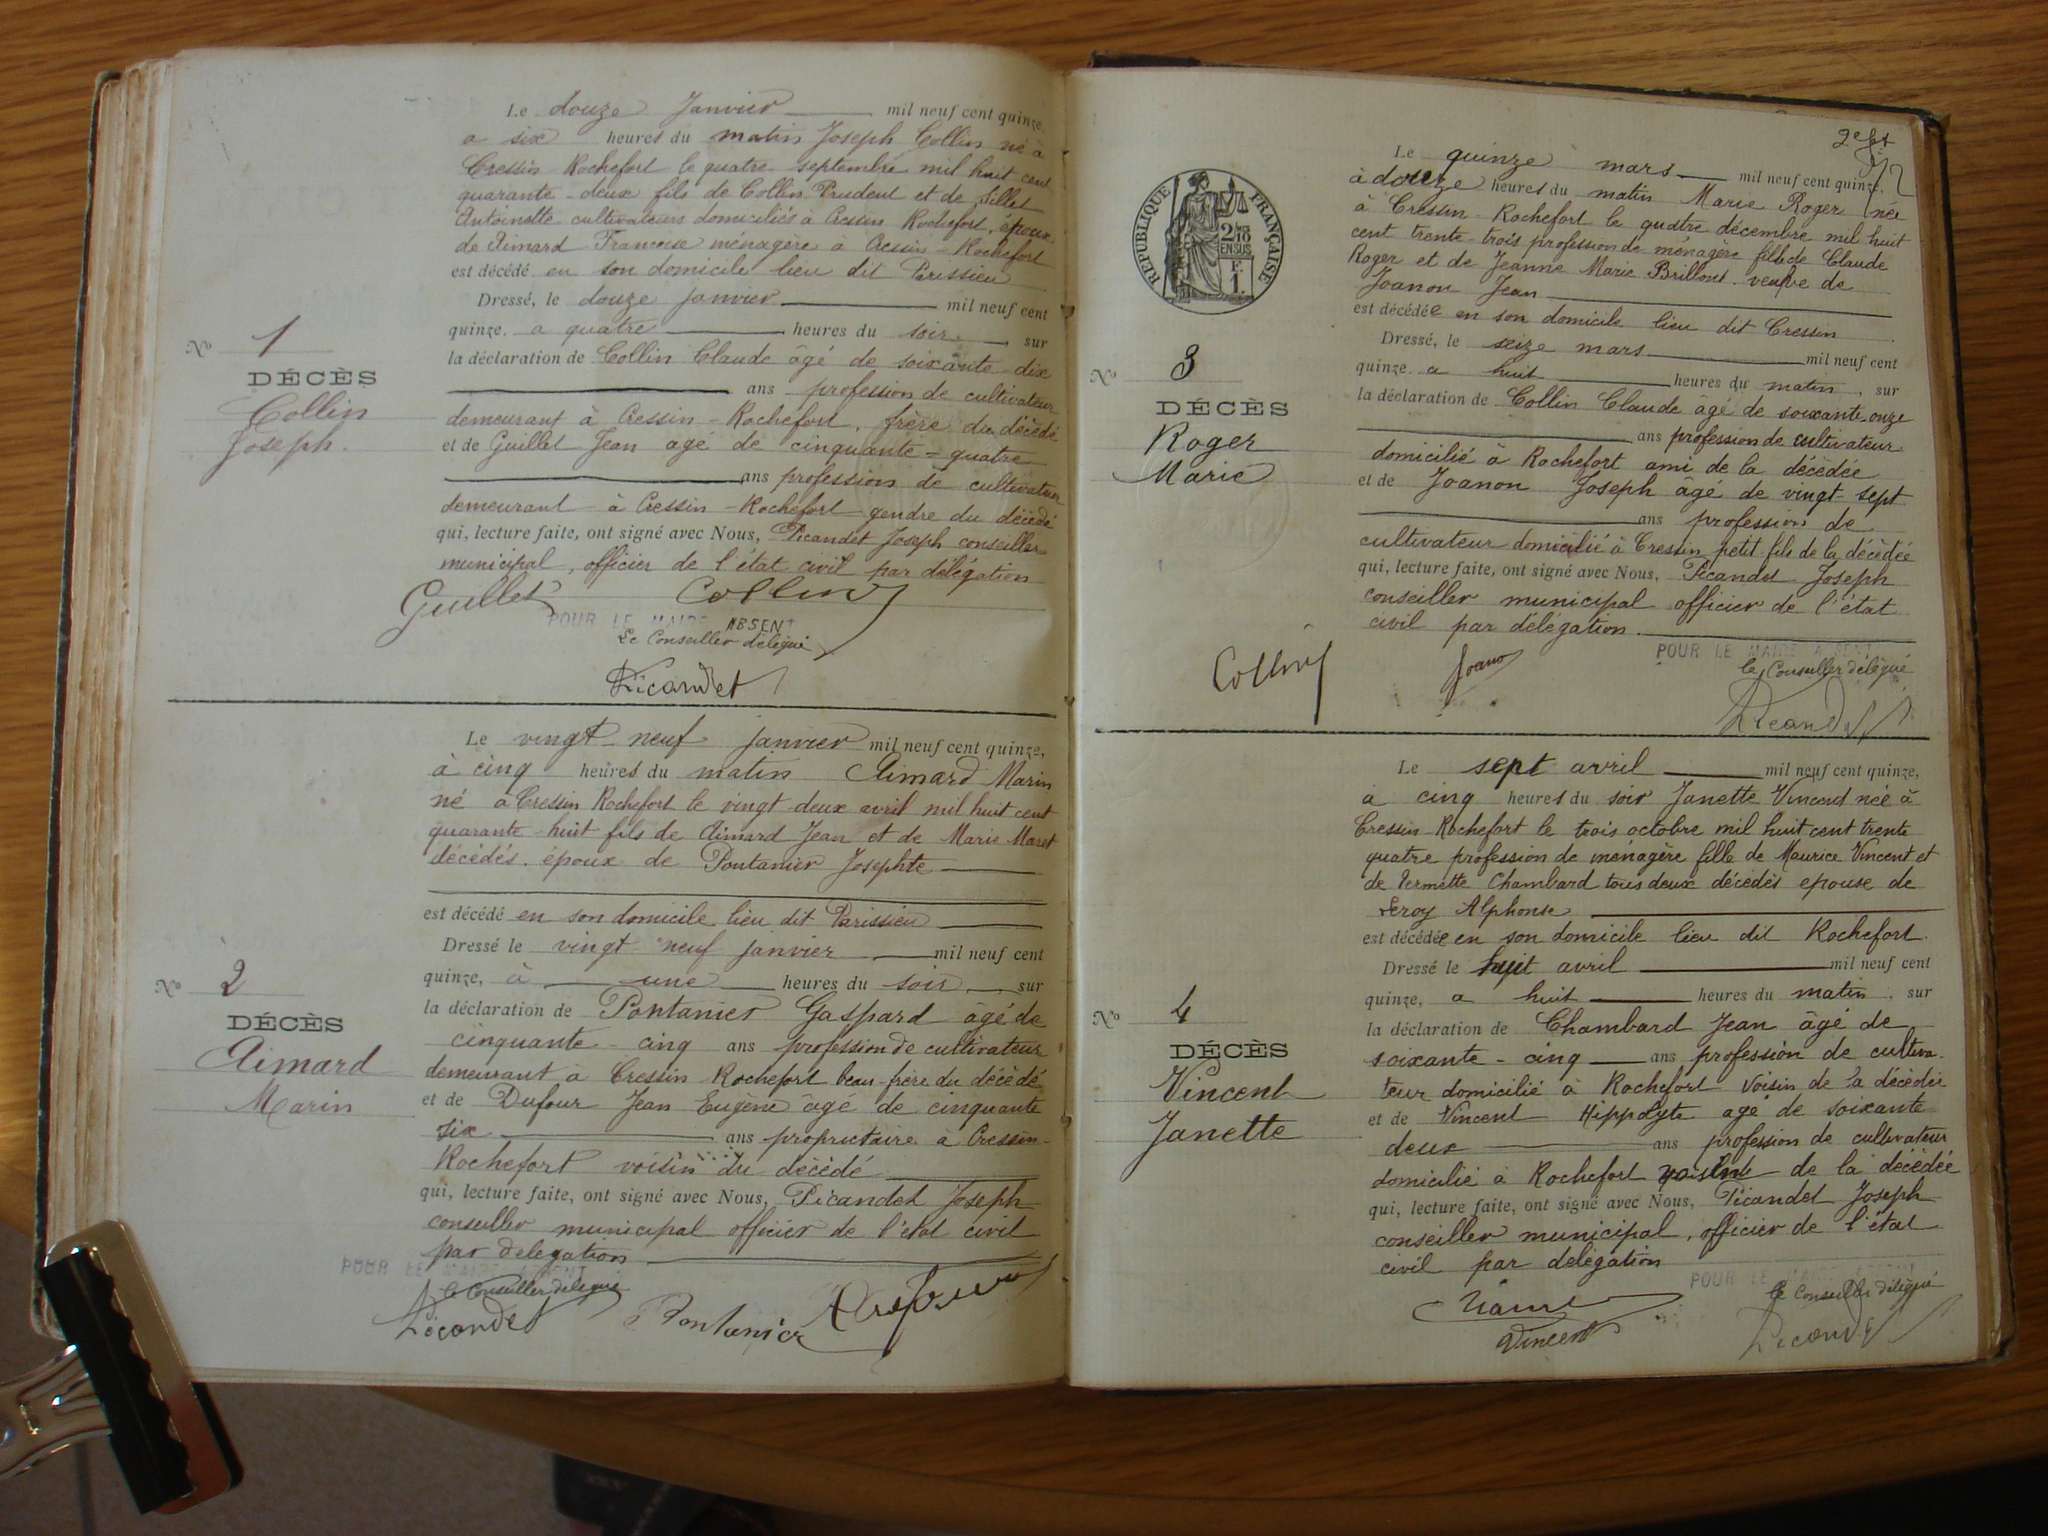 Le douze Janvier mil neuf cent quinze,
a six heures du matin Joseph Collin né à
Cressin Rochefort le quatre septembre mil huit cent
quarante-deux fils de Collin Prudent et de Sillet
Antoinette cultivateurs domiciliés à Cressin Rochefort, époux
de Aimard Francoise ménagère à Cressin-Rochefort
est décédé en son domicile lieu dit Parissieu
Dressé, le douze janvier mil neuf cent
quinze, a quatre heures du soir, sur
la déclaration de Collin Claude âgé de soixante-dix
ans profession de cultivateur
demeurant à Cressin-Rochefort, frère du décédé
et de Guillet Jean agé de cinquante=quatre
ans profession de cultivateur
demeurant à Cressin-Rochefort gendre du décédé
qui, lecture faite, ont signé avec Nous, Picandet Joseph conseiller
municipal, officier de l'état civil par délégation
Guillet Collin
POUR LE MAIRE ABSENT
Le Conseiller délégué
Picandet
No 1
DÉCÈS
Collin
Joseph.
Le vingt-neuf janvier mil neuf cent quinze,
à cinq heures du matin Aimard Marin
né à Cressin Rochefort le vingt-deux avril mil huit cent
quarante-huit fils de Aimard Jean et de Marie Maret
décédés. époux de Pontanier Josephte
est décédé en son domicile lieu dit Parissieu
Dressé le vingt neuf janvier mil neuf cent
quinze, à une heures du soir, sur
la déclaration de Pontanier Gaspard âgé de
cinquante-cinq ans profession de cultivateur
demeurant à Cressin Rochefort beau-frère du décédé
et de Dufour Jean Eugène âgé de cinquante
six ans propriétaire à Cressin-
Rochefort voisin du décédé
qui, lecture faite, ont signé avec Nous, Picandet Joseph
conseiller municipal officier de l'état civil
par delegation
POUR LE MAIRE ABSENT
le Conseiller délégué
Picandet Pontanier Dufour
No 2
DÉCÈS
Aimard
Marin
RÉPUBLIQUE FRANÇAISE
2/10
EN SUS
F.
1.
Le quinze mars mil neuf cent quinze,
à douze heures du matin Marie Roger née
à Cressin-Rochefort le quatre décembre mil huit
cent trente-trois profession de ménagère fille de Claude
Roger et de Jeanne Marie Brillout veuve de
Joanon Jean
est décédée en son domicile lieu dit Cressin
Dressé, le seize mars mil neuf cent
quinze a huit heures du matin, sur
la déclaration de Collin Claude âgé de soixante-onze
ans profession de cultivateur
domicilié à Rochefort ami de la décèdée
et de Joanon Joseph âgé de vingt-sept
ans profession de
cultivateur domicilié à Cressin petit-fils de la décèdée
qui, lecture faite, ont signé avec Nous, Picandet Joseph
conseiller municipal officier de l'état
civil par délégation.
POUR LE MAIRE ABSENT
le Conseiller délégué
Collin Joano Picandet
No 3
DÉCÈS
Roger
Marie
Le sept avril mil neuf cent quinze,
à cinq heures du soir Janette Vincent née à
Cressin Rochefort le trois octobre mil huit cent trente
quatre profession de ménagère fille de Maurice Vincent et
de Permette Chambard tous deux décédés epouse de
Leroy Alphonse
est décédée en son domicile lieu dit Rochefort.
Dressé le huit avril mil neuf cent
quinze, a huit heures du matin, sur
la déclaration de Chambard Jean âgé de
soixante-cinq ans profession de cultiva-
teur domicilié à Rochefort voisin de la décèdée
et de Vincent Hippolyte agé de soixante
deux ans profession de cultivateur
domicilié à Rochefort voisin de la décédée
qui, lecture faite, ont signé avec Nous, Picandet Joseph
conseiller municipal, officier de l'état
civil par délégation
POUR LE MAIRE ABSENT
le Conseiller délégué
Vincent Picandet
No 4
DÉCÈS
Vincent
Janette